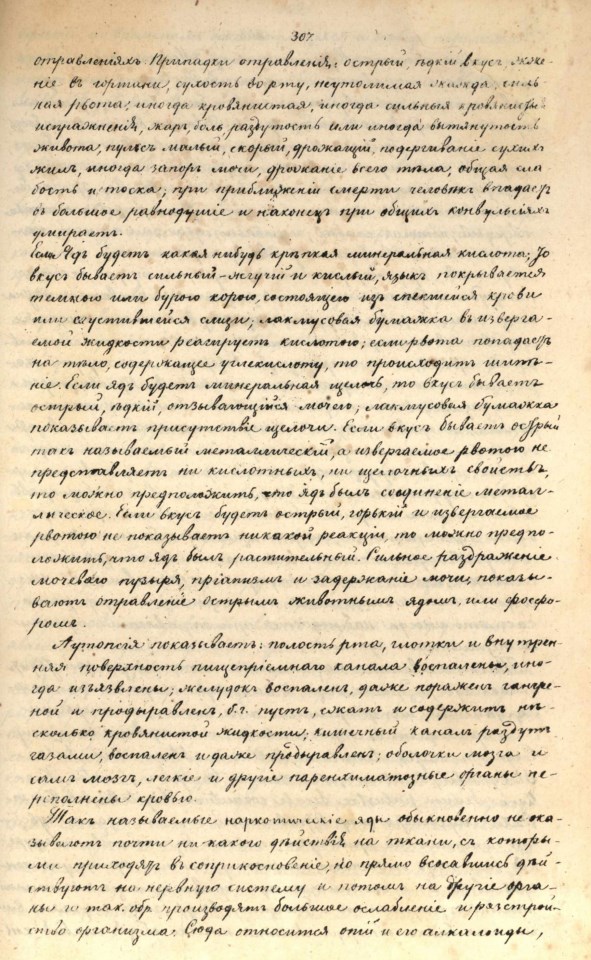 307
отравленіяхъ. Припадки отравленія: острый, ѣдкій вкусъ, жже-
ніе въ гортани, сухость во рту, неутолимая жажда, силь-
ная рвота, иногда кровянистая, иногда сильныя кровянистыя
испражненія, жаръ, боль, раздутость или иногда вытянутость
живота, пульсъ малый, скорый, дрожащій, подергиваніе сухихъ
жилъ, иногда запоръ мочи, дрожаніе всего тѣла, общая сла-
бость и тоска; при приближеніи смерти человѣкъ впадаетъ
въ большое равнодушіе и наконецъ при общихъ конвульсіяхъ
умираетъ.
Если ядъ будетъ какая нибудь крѣпкая минеральная кислота, то
вкусъ бываетъ сильный-жгучій и кислый, языкъ покрывается
темною или бурою корою, состоящею изъ спекшейся крови
или сгустившейся слизи; лакмусовая бумажка въ изверга-
емой жидкости реагируетъ кислотою; если рвота попадаетъ
на тѣло, содержащее углекислоту, то происходитъ шипѣ-
ніе. Если ядъ будетъ минеральная щелочь, то вкусъ бываетъ
острый, ѣдкій, отзывающійся мочею; лакмусовая бумажка
показываетъ присутствіе щелочи. Если вкусъ бываетъ острый
такъ называемый металлическій, а извергаемое рвотою не
представляетъ ни кислотныхъ, ни щелочныхъ свойствъ,
то можно предположить, что ядъ былъ соединеніе метал-
лическое. Если вкусъ будетъ острый, горькій и извергаемое
рвотою не показываетъ никакой реакціи, то можно предпо-
ложить, что ядъ былъ растительный. Сильное раздраженіе
мочеваго пузыря, пріапизмъ и задержаніе мочи, показы-
ваютъ отравленіе острымъ животнымъ ядомъ, или фосфо-
ромъ.
Аутопсія показываетъ: полость рта, глотки и внутрен-
няя поверхность пищепріемнаго канала воспалены, ино-
гда изъязвлены; желудокъ воспаленъ, даже пораженъ гангре-
ной и продыравленъ, б.ч. пустъ, сжатъ и содержитъ нѣ-
сколько кровянистой жидкости; кишечный каналъ раздутъ
газами, воспаленъ и даже продыравленъ; оболочки мозга и
самъ мозгъ, легкіе и другіе паренхиматозные органы пе-
реполнены кровью.
Такъ называемые наркотическіе яды обыкновенно не ока-
зываютъ почти никакого дѣйствія на ткани, съ которы-
ми приходятъ въ соприкосновеніе, но прямо всосавшись дѣй-
ствуютъ на нервную систему и потомъ на другіе орга-
ны и так. обр. производятъ большое ослабленіе и разстрой-
ство организма. Сюда относится опій и его алкалоиды,